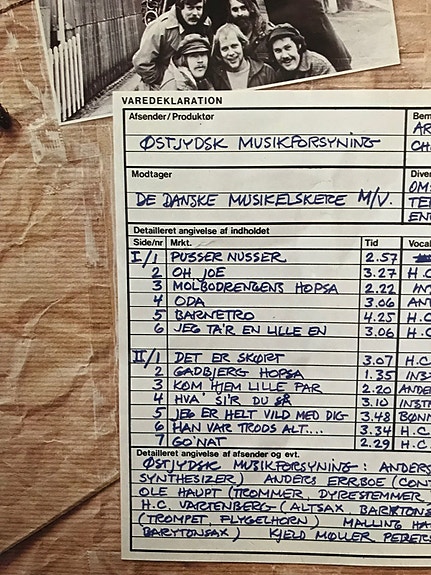 VAREDEKLARATION
Afsender/Produktør
ØSTJYDSK MUSIKFORSYNING
Modtager
DE DANSKE MUSIKELSKERE M/V.
Detailleret angivelse af indholdet
Side/nr Mrkt. Tid Vocal
I/1 PUSSER NUSSER 2.57
2 OH JOE 3.27 H.C
3 MOLBODRENGENS HOPSA 2.22
4 ODA 3.06
5 BARNETRO 4.25 H.C
6 JEG TA'R EN LILLE EN 3.06 H.C.
II/1 DET ER SKØRT 3.07 H.C
2 GADBJERG HOPSA 1.35 INST
3 KOM HJEM LILLE PAR 2.20 ANDE
4 HVA' SI'R DU SÅ 3.10 INSTR
5 JEG ER HELT VILD MED DIG 3.48 BØNN
6 HAN VAR TRODS ALT.... 3.34 H.C.
7 GO'NAT 2.29 H.C.
Detailleret angivelse af afsender og evt.
ØSTJYDSK MUSIKFORSYNING: ANDERS
SYNTHESIZER) ANDERS ERRBOE (CON
OLE HAUPT (TROMMER, DYRESTEMMER
H.C. VARTENBERG (ALTSAX, BARYTONS
(TROMPET, FLYGELHORN) MALLING HA
BARYTONSAX) KJELD MØLLER PEDERS